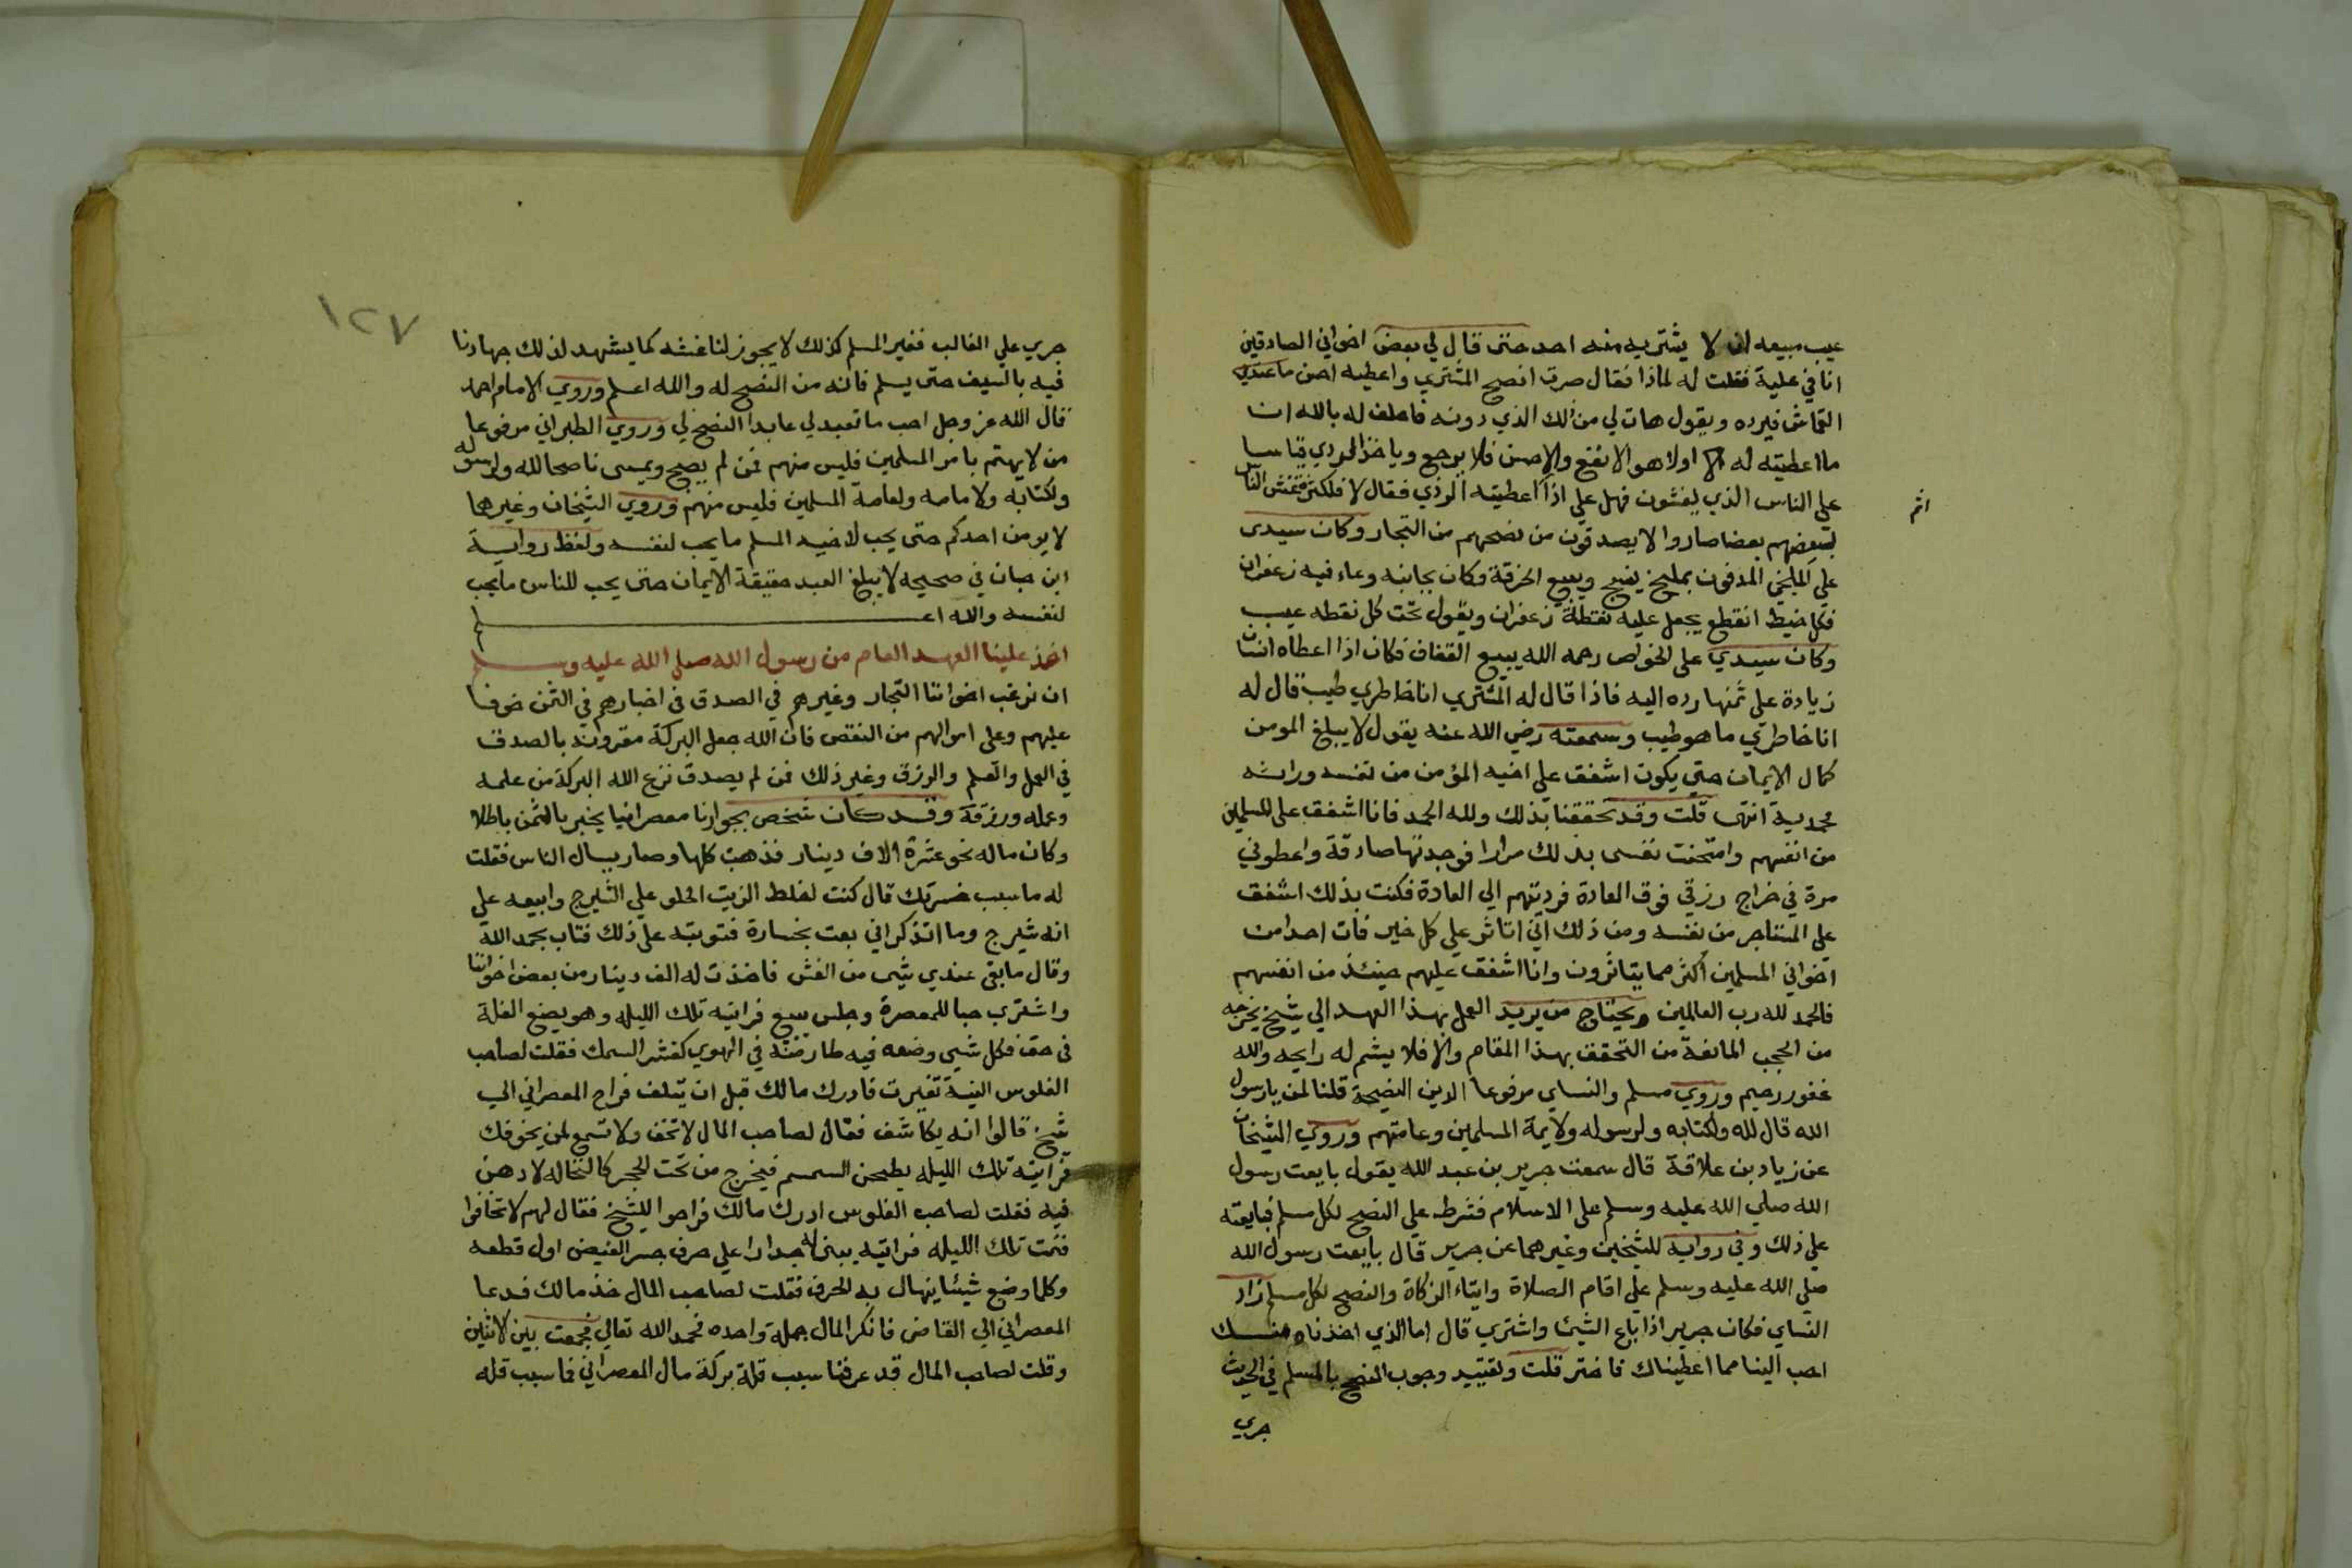 عيب مبيعه ان لا يشتريه منه احد حتى قال لي بعض اخواني الصادقين
انا في علية فقلت له لماذا فقال صرت انصح المشتري واعطيه احسن ما عندي
القماش فيرده ويقول هات لي من لك الذي دونه فاحلف له بالله ان
ما اعطيته له اولا هو الانفع والاحسن فلا يرجع وياخذ الردي قياسا
على الناس الذي يغشون فهل علي اذا اعطيته الردي فقال لا فلكثرة غش الناس
اثم
لبعضهم بعضا صاروا لا يصدقون من نصحهم من التجار وكان سيدى
علي المدفون بمليج ينسج ويبيع الخرقة وكان بجانبه وعاء فيه زعفران
فكل خيط انقطع يجعل عليه نقطة زعفران ويقول تحت كل نقطه عيب
وكان سيدي على الخواص رحمه الله يبيع القفاف فكان اذا اعطاه انسان
زيادة على ثمنها رده اليه فاذا قال له المشتري انا خاطري طيب قال له
انا خاطري ما هو طيب وسمعته رضي الله عنه يقول لا يبلغ المومن
كمال الايمان حتى يكون اشفق على اخيه المؤمن من نفسه وراثه
محمدية انتهى قلت وقد تحققنا بذلك ولله الحمد فانا اشفق على المسلمين
من انفسهم وامتحنت نفسى بذلك مرارا فوجدتها صادقة واعطوني
مرة في خراج رزقي فوق العادة فرديتهم الي العادة فكنت بذلك اشفق
على المستاجر من نفسه ومن ذلك اني اتاثر على كل خير فات احدا من
اخواني المسلمين اكثر مما يتاثرون وانا اشفق عليهم حينئذ من انفسهم
فالحمد لله رب العالمين ويحتاج من يريد العمل بهذا العهد الي شيخ يخرجه
من الحجب المانعة من التحقق بهذا المقام والا فلا يشم له رايحه والله
غفور رحيم وروي مسلم والنساي مرفوعا الدين النصيحة قلنا لمن يارسول
الله قال لله ولكتابه ولرسوله ولايمة المسلمين وعامتهم وروي الشيخان
عن زياد بن علاقة قال سمعت جرير بن عبد الله يقول بايعت رسول
الله صلي الله عليه وسلم على الاسلام فشرط علي النصح لكل مسلم فبايعته
علي ذلك وفي رواية للشيخين وغيرهما عن جرير قال بايعت رسول الله
صلى الله عليه وسلم على اقام الصلاة وايتاء الزكاة والنصح لكل مسلم زاد
النساي فكان جرير اذا باع الشيئ واشتري قال اما الذي اخذناه منك
احب الينا مما اعطيناك فاختر قلت وتقييد وجوب النصح بالمسلم في الحديث
جري
١٢٧
جري على الغالب فغير المسلم كذلك لا يجوز لنا غشه كما يشهد لذلك جهادنا
فيه بالسيف حتى يسلم فانه من النصح له والله اعلم وروي الامام احمد
قال الله عز وجل احب ما تعبد لي عابدا النصح لي وروي الطبراني مرفوعا
من لا يهتم بامر المسلمين فليس منهم فمن لم يصبح ويمسى ناصحا لله ولرسوله
ولكتابه ولامامه ولعامة المسلمين فليس منهم وروي الشيخان وغيرهما
لا يومن احدكم حتى يحب لاخيه المسلم ما يحب لنفسه ولفظ رواية
ابن حبان في صحيحه لا يبلغ العبد حقيقة الايمان حتى يحب للناس ما يحب
لنفسه والله اعلم
اخذ علينا العهد العام من رسول الله صلى الله عليه وسلم
ان نرغب اخواننا التجار وغيرهم في الصدق في اخبارهم في الثمن خوفا
عليهم وعلى اموالهم من النقص فان الله جعل البركة مقرونة بالصدق
في العمل والعلم والرزق وغير ذلك فمن لم يصدق نزع الله البركة من علمه
وعمله ورزقه وقد كان شخص بجوارنا معصرانيا يخبر بالثمن باطلا
وكان ماله نحو عشرة الاف دينار فذهبت كلها وصار يسال الناس فقلت
له ما سبب خسرتك قال كنت اخلط الزيت الحلو علي الشيرج وابيعه علي
انه شيرج وما اتذكر اني بعت بخسارة فتوبته على ذلك فتاب بحمد الله
وقال ما بقى عندي شي من الغش فاخذت له الف دينار من بعض اخواننا
واشتري حبا للمعصرة وجلس يبيع فرايته تلك الليله وهو يضع الغلة
في قف فكل شيي وضعه فيه طار في الهوي كقشر السمك فقلت لصاحب
الفلوس النية تغيرت فادرك مالك قبل ان يتلف فراح المعصراني الي
شيخ قالوا انه يكاشف فقال لصاحب المال لا تخف ولا تسمع لمن يخوفك
فرايته تلك الليله يطحن السمسم فيخرج من تحت الحجر كالنخاله لا دهن
فيه فقلت لصاحب الفلوس ادرك مالك فراحوا للشيخ فقال لهم لا تخافوا
فنمت تلك الليله فرايته يبني له جدارا على حرف جسر الفيض اول قطعه
وكلما وضع شيئا ينهال به الحرف فقلت لصاحب المال خذ مالك فدعا
المعصراني الي القاضى فانكر المال جملة واحده فحمد الله تعالي فجمعت بين الاثنين
وقلت لصاحب المال قد عرفنا سبب قلة بركة مال المعصراني فما سبب قله